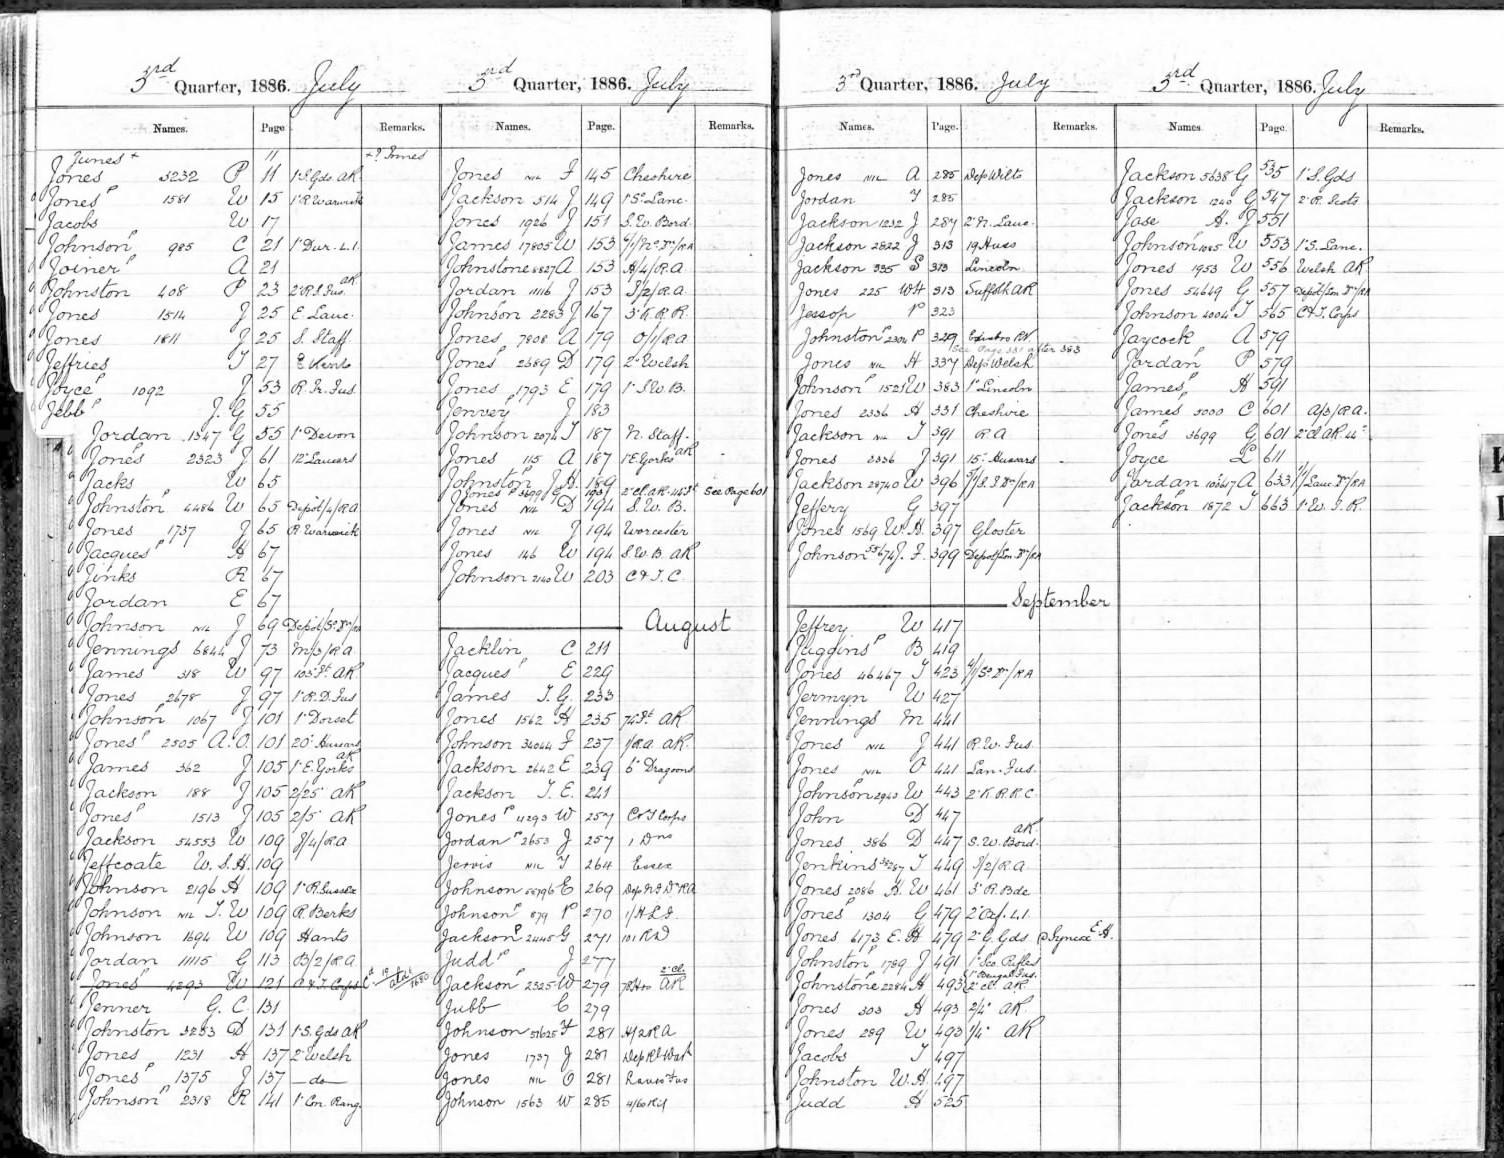 3rd Quarter, 1886. July
Names. Page Remarks.
Junes + 11 +? Innes
Jones 3232 P 11 1 S. Gds AR
Jones P 1581 W 15 1 R. Warwick
Jacobs W 17
Johnson P 985 C 21 1 Dur. L.I.
Joiner P A 21
Johnston 408 P 23 2 R.I. Fus. AR
Jones 1514 J 25 E Lanc.
Jones 1811 J 25 S. Staff
Jeffries T 27 E Kent
Joyce P 1092 J 53 R. Ir. Fus.
Jebb P J. G 55
Jordan 1547 G 55 1 Devon
Jones 2323 J 61 12 Lancers
Jacks W 65
Johnston 4486 W 65 Depôt/4/RA
Jones 1737 J 65 R Warwick
Jacques P H 67
Jinks R 67
Jordan E 67
Johnson NIL J 69
Jennings 6844 J 73 M/3/RA
James 318 W 97 103 Ft. AR
Jones 2678 J 97 1 R.D. Fus
Johnson P 1067 J 101 1 Dorset
Jones P 2505 A.O. 101 20 Hussars
James 362 J 105 1 E. Yorks AR
Jackson 188 J 105 2/25 AR
Jones P 1513 J 105 2/5 AR
Jackson 54553 W 109 J/4/RA
Jeffcoate W.S.H. 109
Johnson 2196 H 109 1 R. Sussex
Johnson NIL T.W 109 R. Berks
Johnson 1694 W 109 Hants
Jordan 11115 G 113 B/2/RA
Jones P 4293 W 121 C & T. Corps
Jenner G. C. 131
Johnston 3253 D 131 1 S. Gds AR
Jones 1231 H 137 2 Welsh
Jones P 1375 J 137 — do —
Johnson P 2318 R 141 1 Con. Rang.
3rd Quarter, 1886. July
Names. Page. Remarks.
Jones NIL F 145 Cheshire
Jackson 514 J 149 1 S. Lanc.
Jones 1926 J 151 S. W. Bord.
James 17805 W 153
Johnstone 8827 A 153 H/4/R.A.
Jordan 11116 J 153 I/2/R.A.
Johnson 2283 J 167 3 K. R. R.
Jones 7808 A 179 O/1/RA
Jones P 2689 D 179 2 Welsh
Jones 1793 E 179 1 S.W.B.
Jenvey P J 183
Johnson 2074 T 187 N. Staff.
Jones 115 A 187 1 E Yorks AR
Johnston P J.H. 189
Jones P 3699 G 193 2 Cl. AR. 44 Ft See Page 601
Jones NIL D 194 S. W. B.
Jones NIL J 194 Worcester
Jones 146 W 194 S.W.B. AR
Johnson 2140 W 203 C & T. C.
August
Jacklin C 211
Jacques P E 229
James T. G. 233
Jones 1562 H 235 74 Ft. AR
Johnson 34044 F 237 1/R.A. AR.
Jackson 2642 E 239 6 Dragoons
Jackson J. E. 241
Jones P 4293 W 257 C & T Corps
Jordan P 2653 J 257 1 Dns
Jervis NIL T 264 Essex
Johnson 56796 E 269
Johnson P 879 P 270 1/H.L.I.
Jackson P 2445 G 271
Judd P J 277
Jackson 2325 W 279 2 Cl. AR
Jubb C 279
Johnson 51625 H 281 H/2 RA
Jones 1737 J 281
Jones NIL O 281
Johnson 1563 W 285
3rd Quarter, 1886. July
Names. Page. Remarks.
Jones NIL A 285 Dep Wilts
Jordan T 285
Jackson 1232 J 287 2 N. Lanc.
Jackson 2822 J 313 19 Huss
Jackson 335 S 313 Lincoln
Jones 225 WH 313 Suffolk AR
Jessop P 323
Johnston P 2304 P 329
See Page 331 after 383
Jones NIL H 337 Dep Welsh
Johnson P 1521 W 383 1 Lincoln
Jones 2336 H 331 Cheshire
Jackson NIL T 391 R.A
Jones 2336 J 391 15 Hussars
Jackson 28740 W 396
Jeffery G 397
Jones 1569 W.H. 397 Gloster
Johnson 55674 J. F. 399
September
Jeffrey W 417
Juggins P B 419
Jones 46467 T 423
Jermyn W 427
Jennings M 441
Jones NIL J 441 R. W. Fus.
Jones NIL O 441 Lan. Fus.
Johnson P 2940 W 443 2 K. R. R. C.
John D 447
Jones 386 D 447 S. W. Bord. AR
Jenkins 38287 T 449 I/2/R.A.
Jones 2086 B. W 461 3 R. Bde
Jones P 1304 G 479 2 Oxf. L.I.
Jones 6173 E. H 479 2 G. Gds
Johnston P 1789 J 491 1 Sco. Rifles
Johnstone 2284 H 493 2 Cl. AR.
Jones 303 H 493 2/4 AR.
Jones 289 W 493 1/4 AR
Jacobs T 497
Johnston W. H 497
Judd H 525
3rd Quarter, 1886. July
Names. Page. Remarks.
Jackson 5638 G 535 1 S. Gds
Jackson 1240 G 547 2 R. Scots
Jase H. J 551
Johnson P 1085 W 553 1 S. Lanc.
Jones 1953 W 556 Welsh AR
Jones 54649 G 557
Johnson 4004 T 565 C & T. Corps
Jaycock A 579
Jordan P P 579
James P H 591
James P 3000 C 601 A/3/R.A.
Jones P 3699 G 601 2 Cl AR. 44
Joyce L 611
Jordan 10347 A 633
Jackson P 1872 T 663 1 W. I. R.